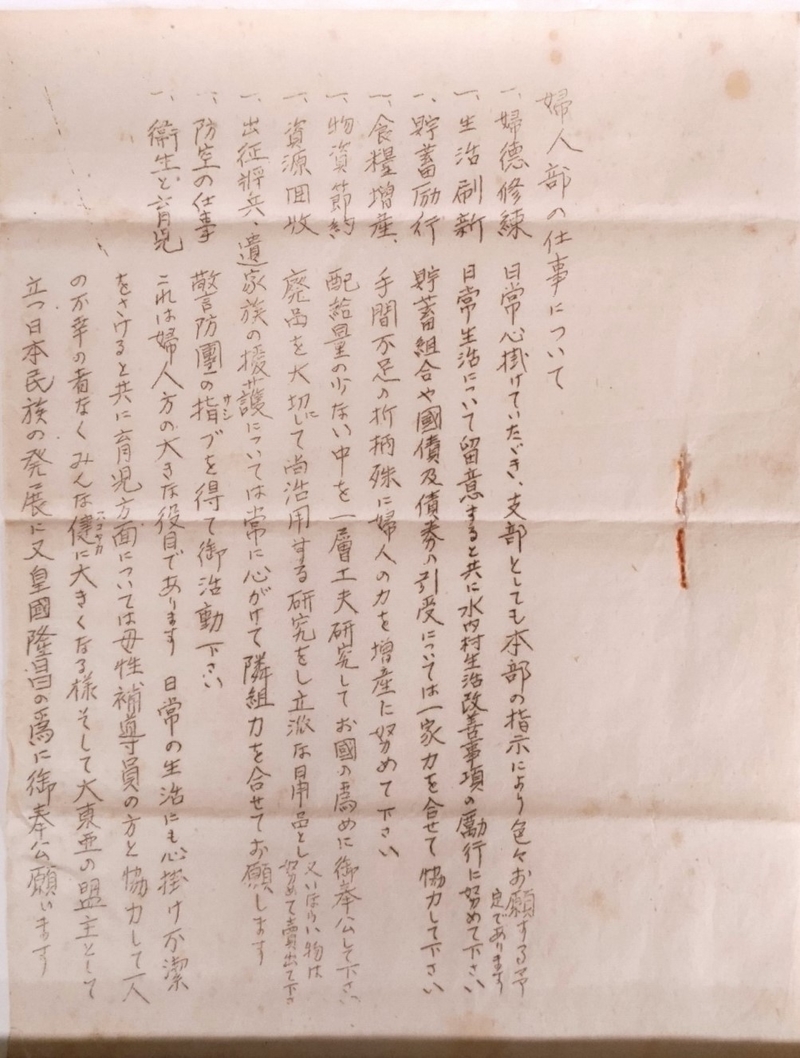 婦人部の仕事について
一、婦德修練 日常心掛けていたゞき、支部としても本部の指示により色々お願する予定であります
一、生活刷新 日常生活について留意すると共に水内村生活改善事項の励行に努めて下さい
一、貯蓄励行 貯蓄組合や國債及債券の引受については一家力を合せて協力して下さい
一、食糧増産、手間不足の折柄殊に婦人の力を増産に努めて下さい
一、物資節約 配給量の少ない中を一層工夫研究してお國の為めに御奉公して下さい
一、資源回收 廃品を大切にして尚活用する研究をし立派な日用品とし又いらない物は努めて賣出て下さ
一、出征将兵・遺家族の援護については常に心がけて隣組力を合せてお願します
一、防空の仕事 警防團の指ヅを得て御活動下さい
サシ
一、衛生と育児 これは婦人方の大きな役目であります 日常の生活にも心掛け不潔
をさけると共に育児方面については母性補導員の方と協力して一人
の不幸の者なくみんな健に大きくなる様そして大東亜の盟主として
スコヤカ
立つ日本民族の発展に又皇國隆昌の為に御奉公願います